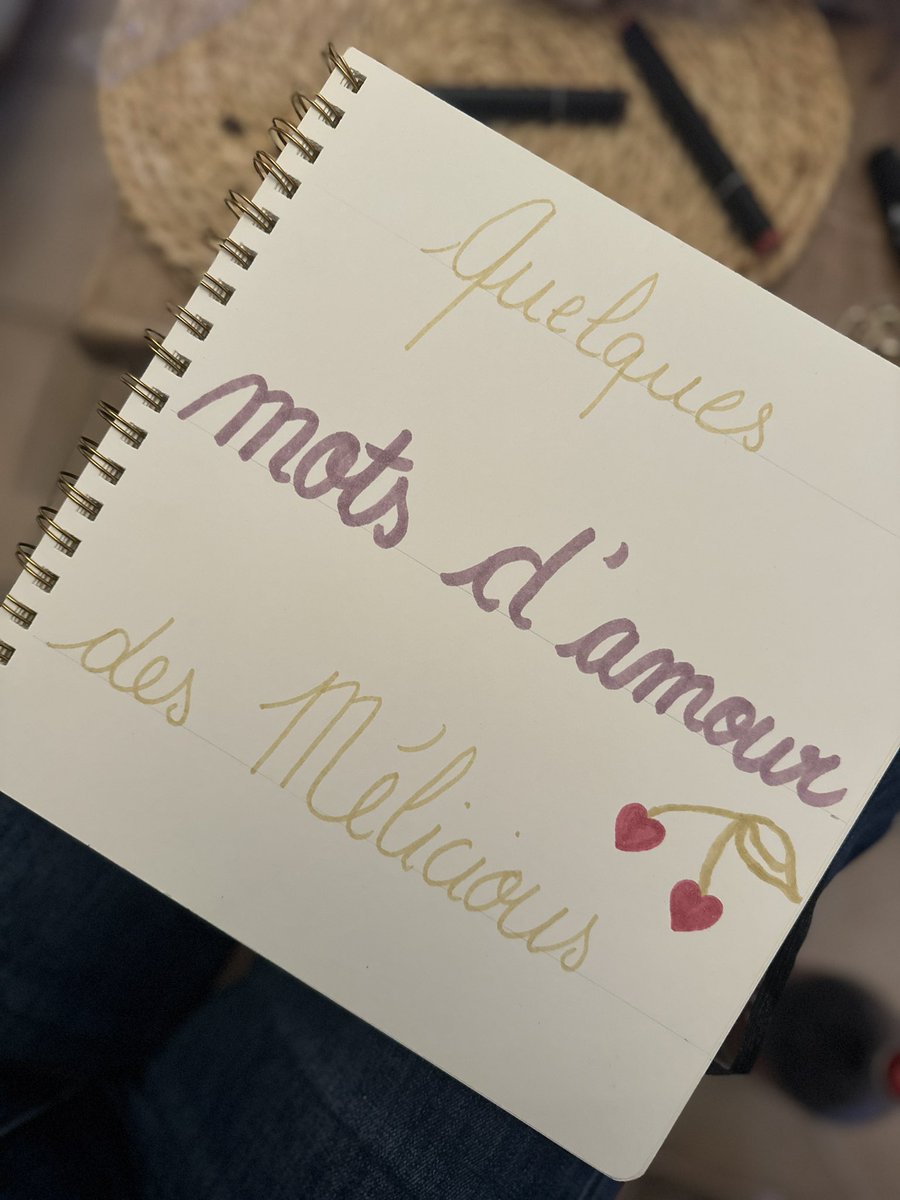 Quelques
mots d'amour
des Mélicious